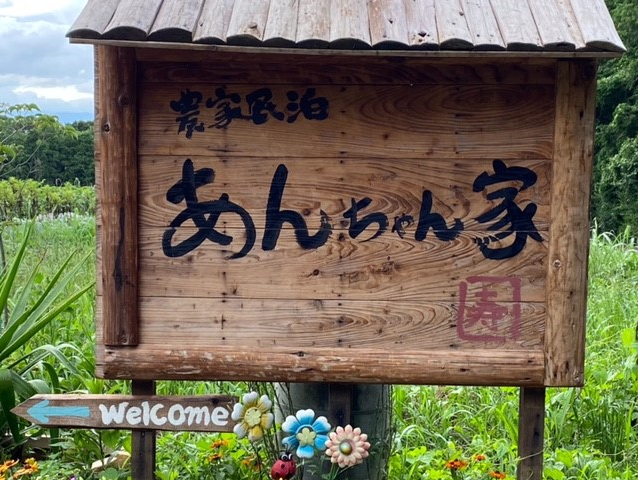 農家民泊
あんちゃん家
寿
Welcome